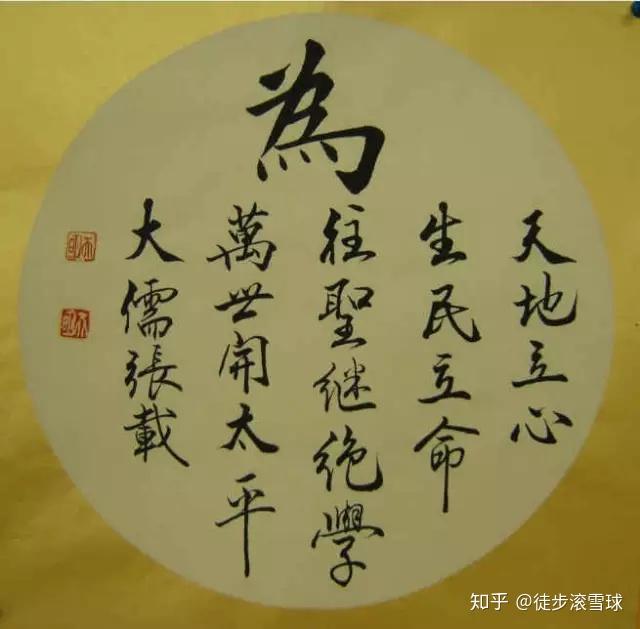 為
天地立心
生民立命
往聖继绝學
萬世開太平
大儒張載
知乎 @徒步滚雪球